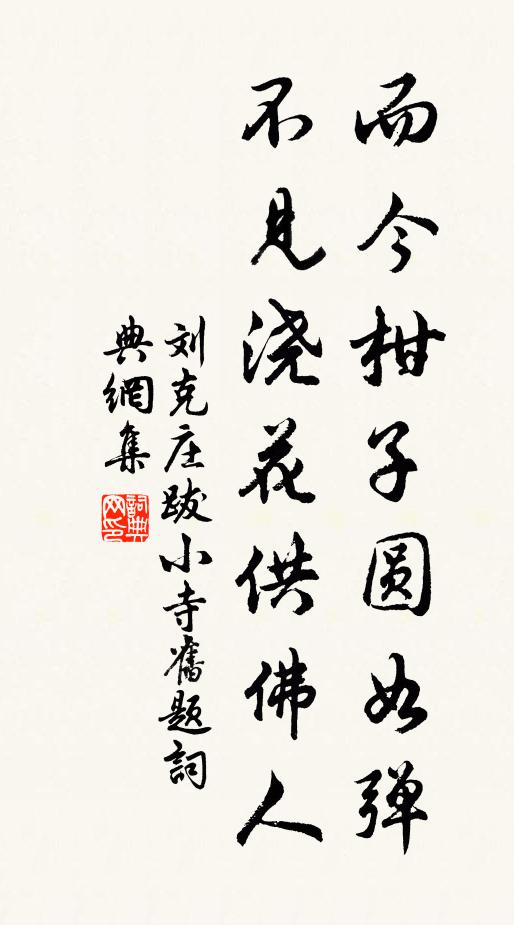 而今柑子圆如弹
不见浇花供佛人
刘克庄跋小寺舊题詞
典網集
詞典网印